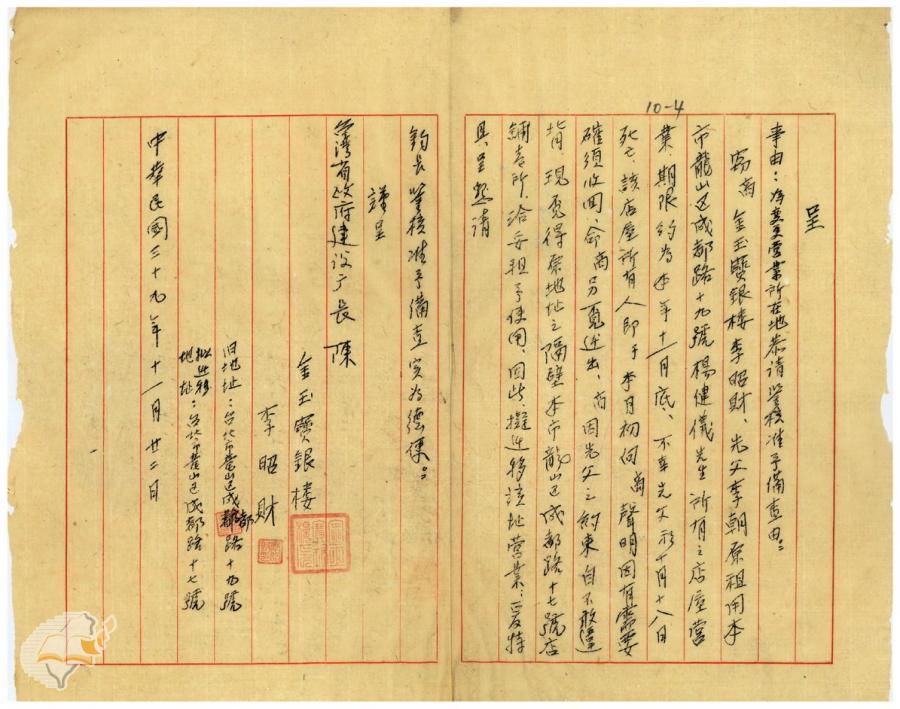 10-4
呈
事由：為變更營業所在地恭請鑒核准予備查由：
竊商金玉寶銀楼李昭財、先父李朝原租用本
市龍山区成都路十九號楊健儀先生所有之店屋營
業、期限約為本年十一月底、不幸先父於十月十八日
死亡、該店屋所有人即于本月初向商聲明因有需要
確須收回、命商另覓迁出、商因先父之約束自不敢違
背、現覓得原地址之隔壁本市龍山区成都路十七號店
鋪壱所、洽妥租予使用、因此、擬迁移該址營業：爰特
具呈懇請
鈞長鑒核准予備查实為德便：
謹呈
台湾省政府建设厅長陳
金玉寶銀楼
李昭財
旧地址：台北市龍山区成都路十九號
都
拟迁移地址：台北市龍山区成都路十七號
中華民國三十九年十一月廿二日